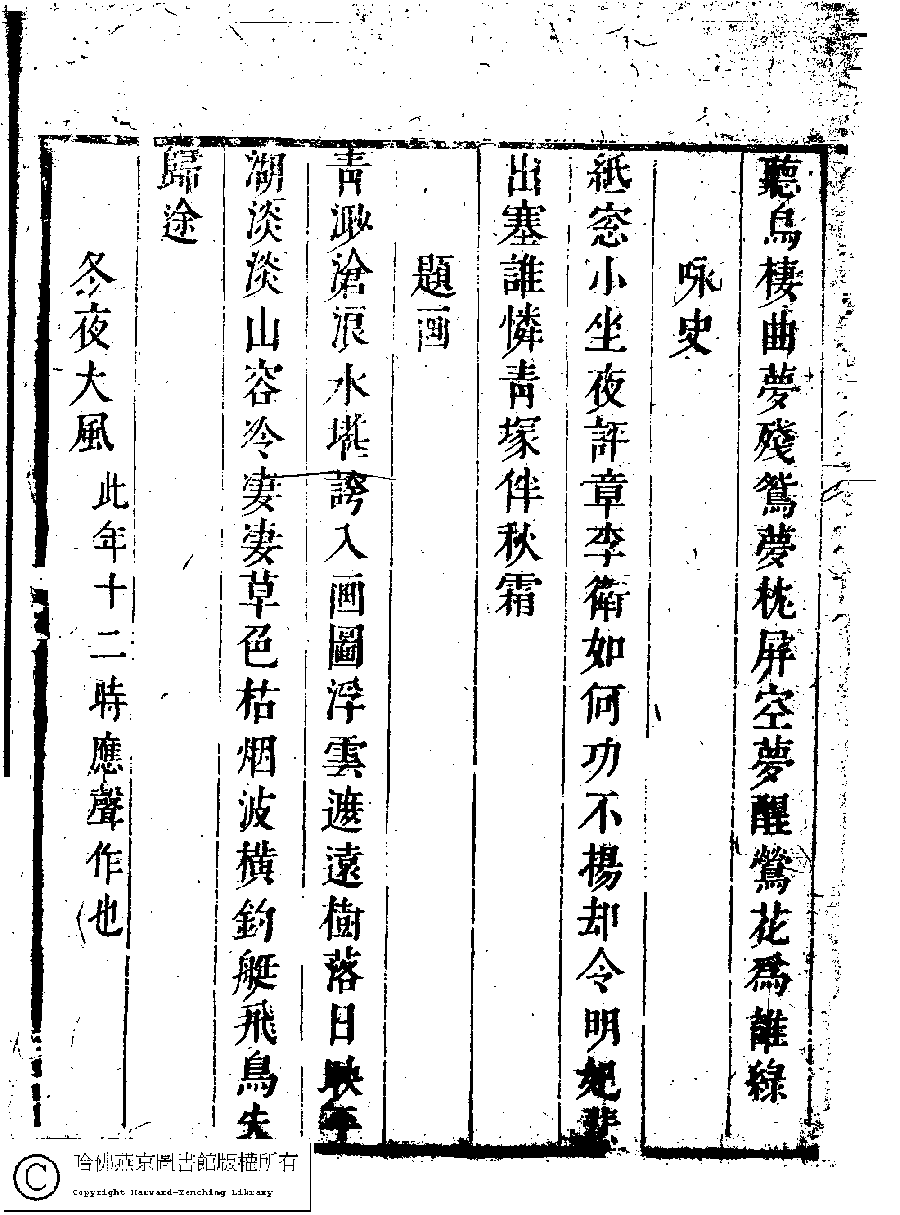 聽烏棲曲夢殘鴛夢枕屏空夢醒鶯花爲誰綠
咏史
紙窓小坐夜評章李衛如何功不揚却令明妃悲
出塞誰憐青塚伴秋霜
題画
青渺滄浪水堪誇入画圖浮雲遮遠樹落日映平
湖淡淡山容冷凄凄草色枯烟波橫釣艇飛鳥失
歸途
冬夜大風 此年十二時應聲作也
哈佛燕京圖書館版權所有
Copyright Harvard-Yenching Library